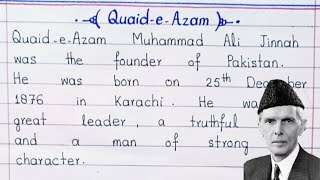 Quaid-e-Azam
Quaid-e-Azam Muhammad Ali Jinnah
was the founder of Pakistan.
He was born on 25th December
1876 in Karachi. He wa
great leader, a truthful
and a man of strong
character.